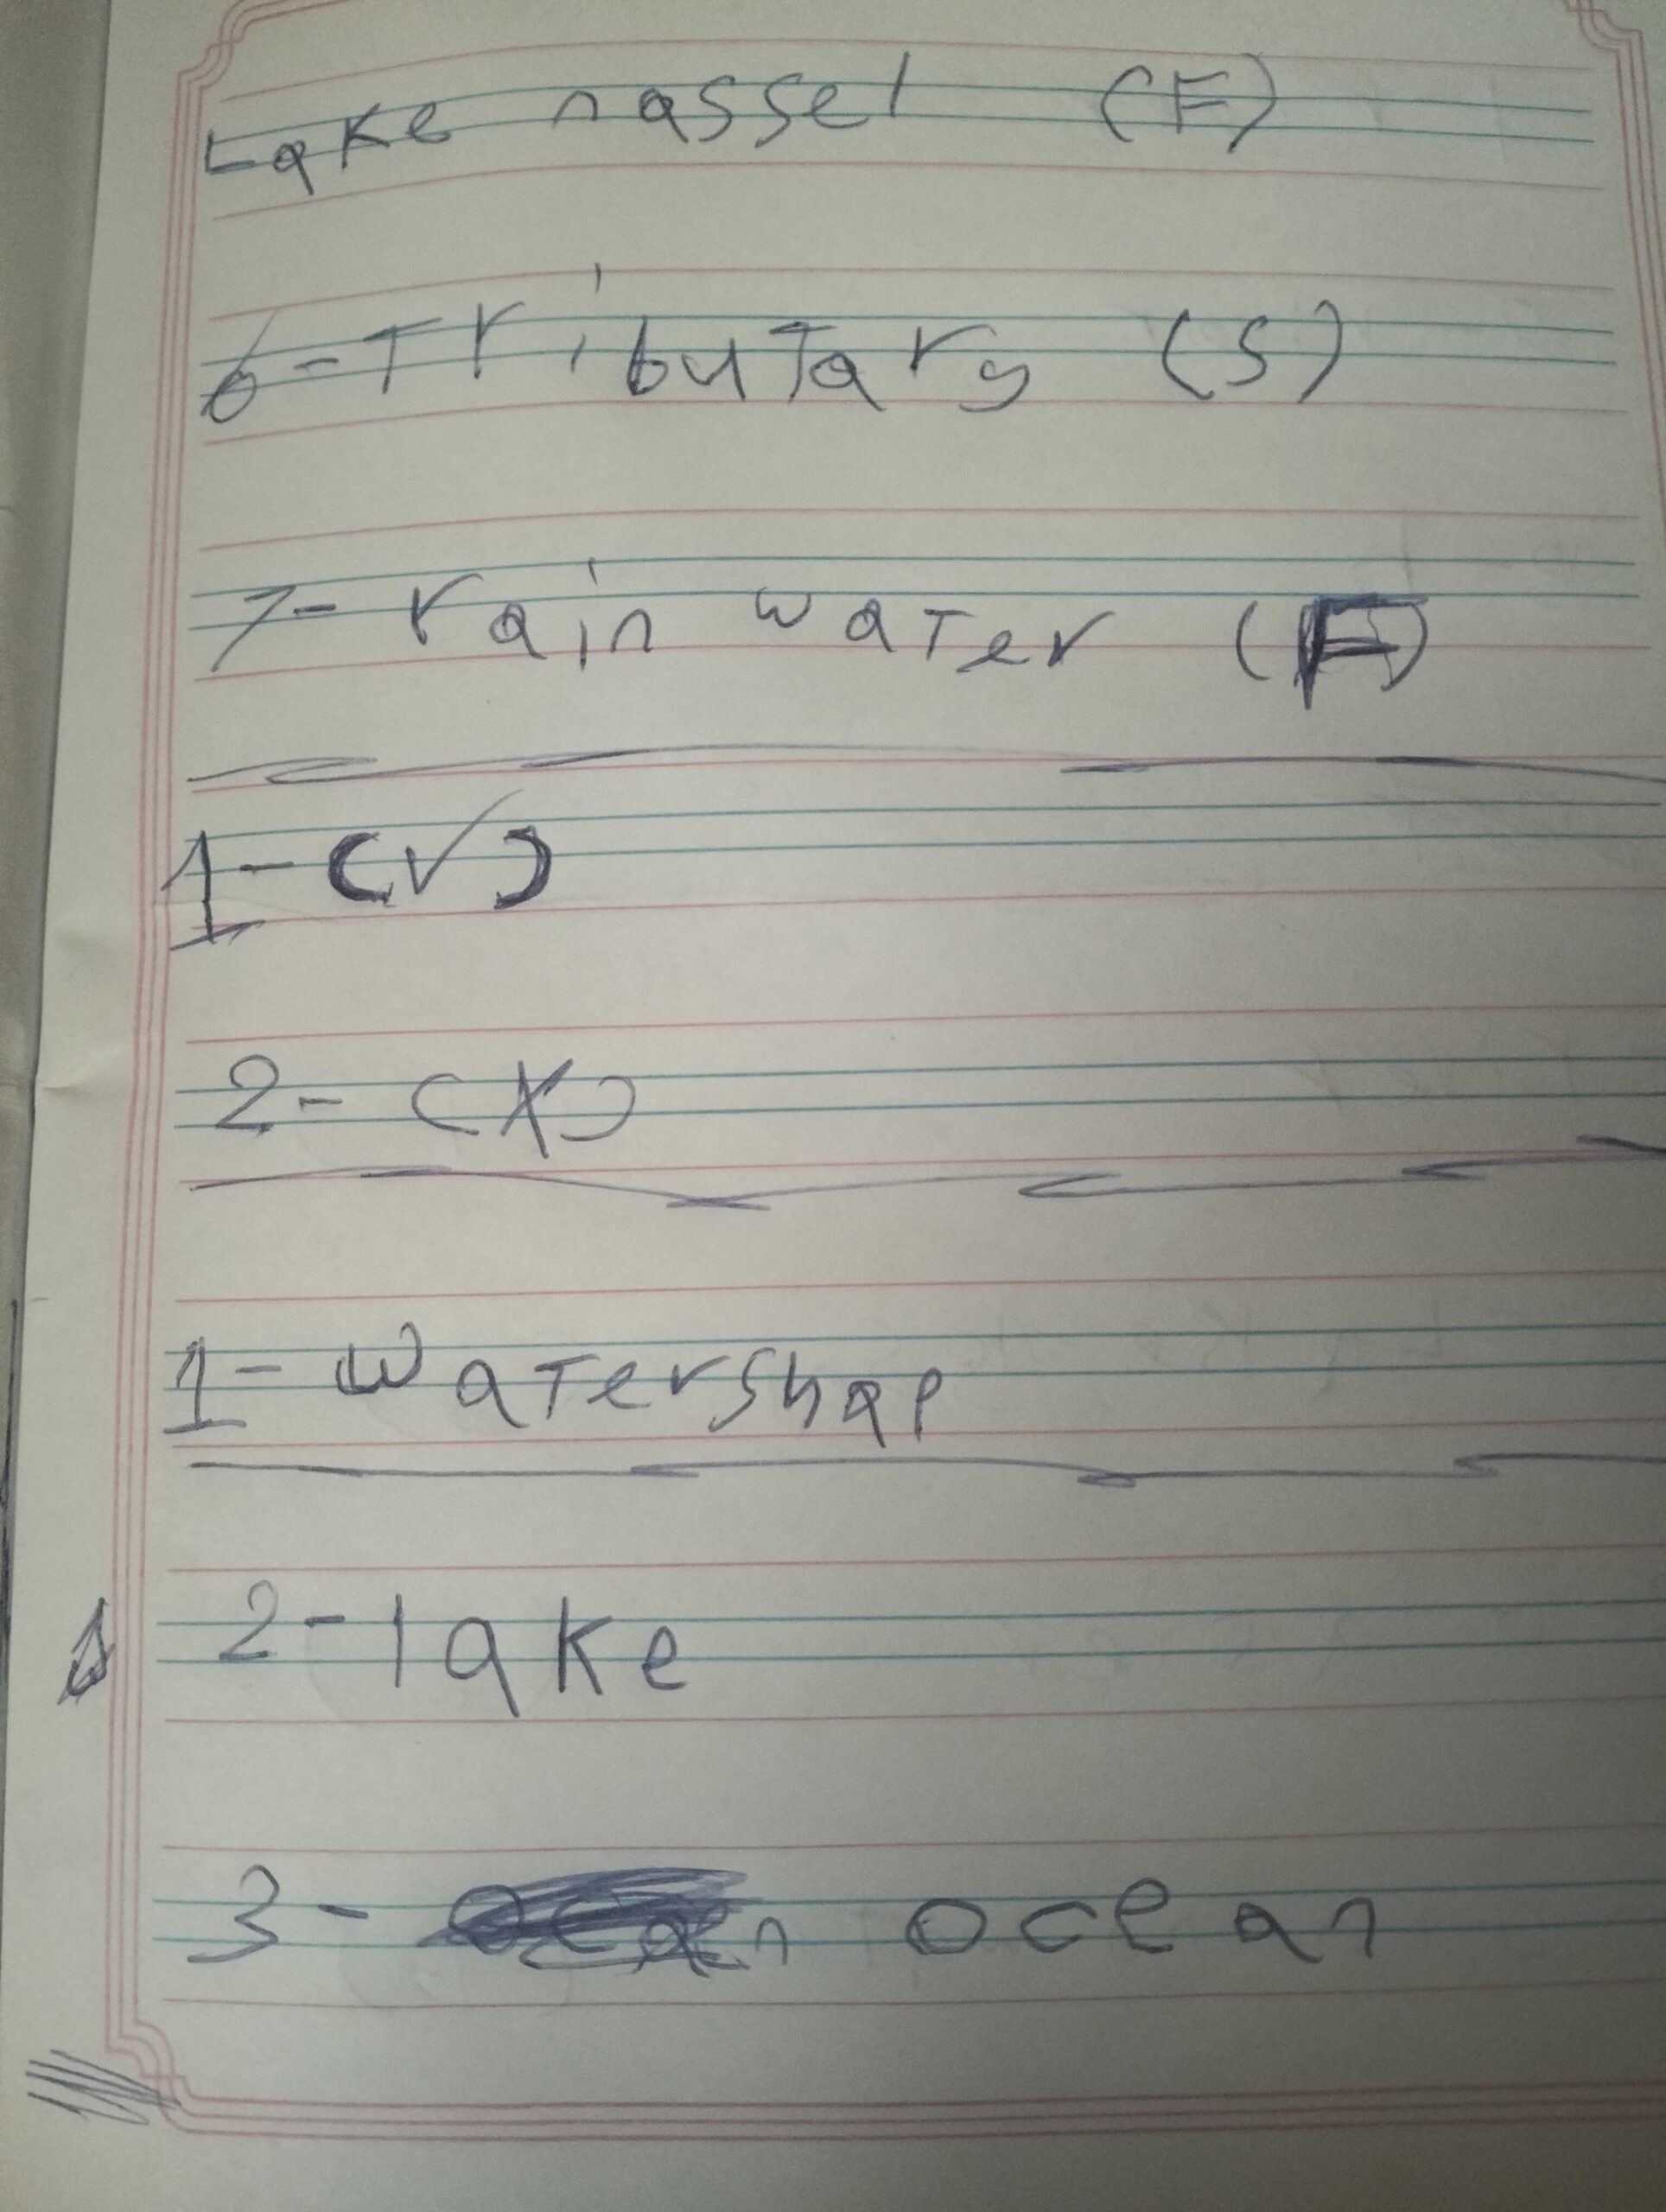 Lake nassel (F)
6-Tributary (S)
7- rain water (F)
1-(✓)
2- (X)
1- watershap
2-lake
3- ocean